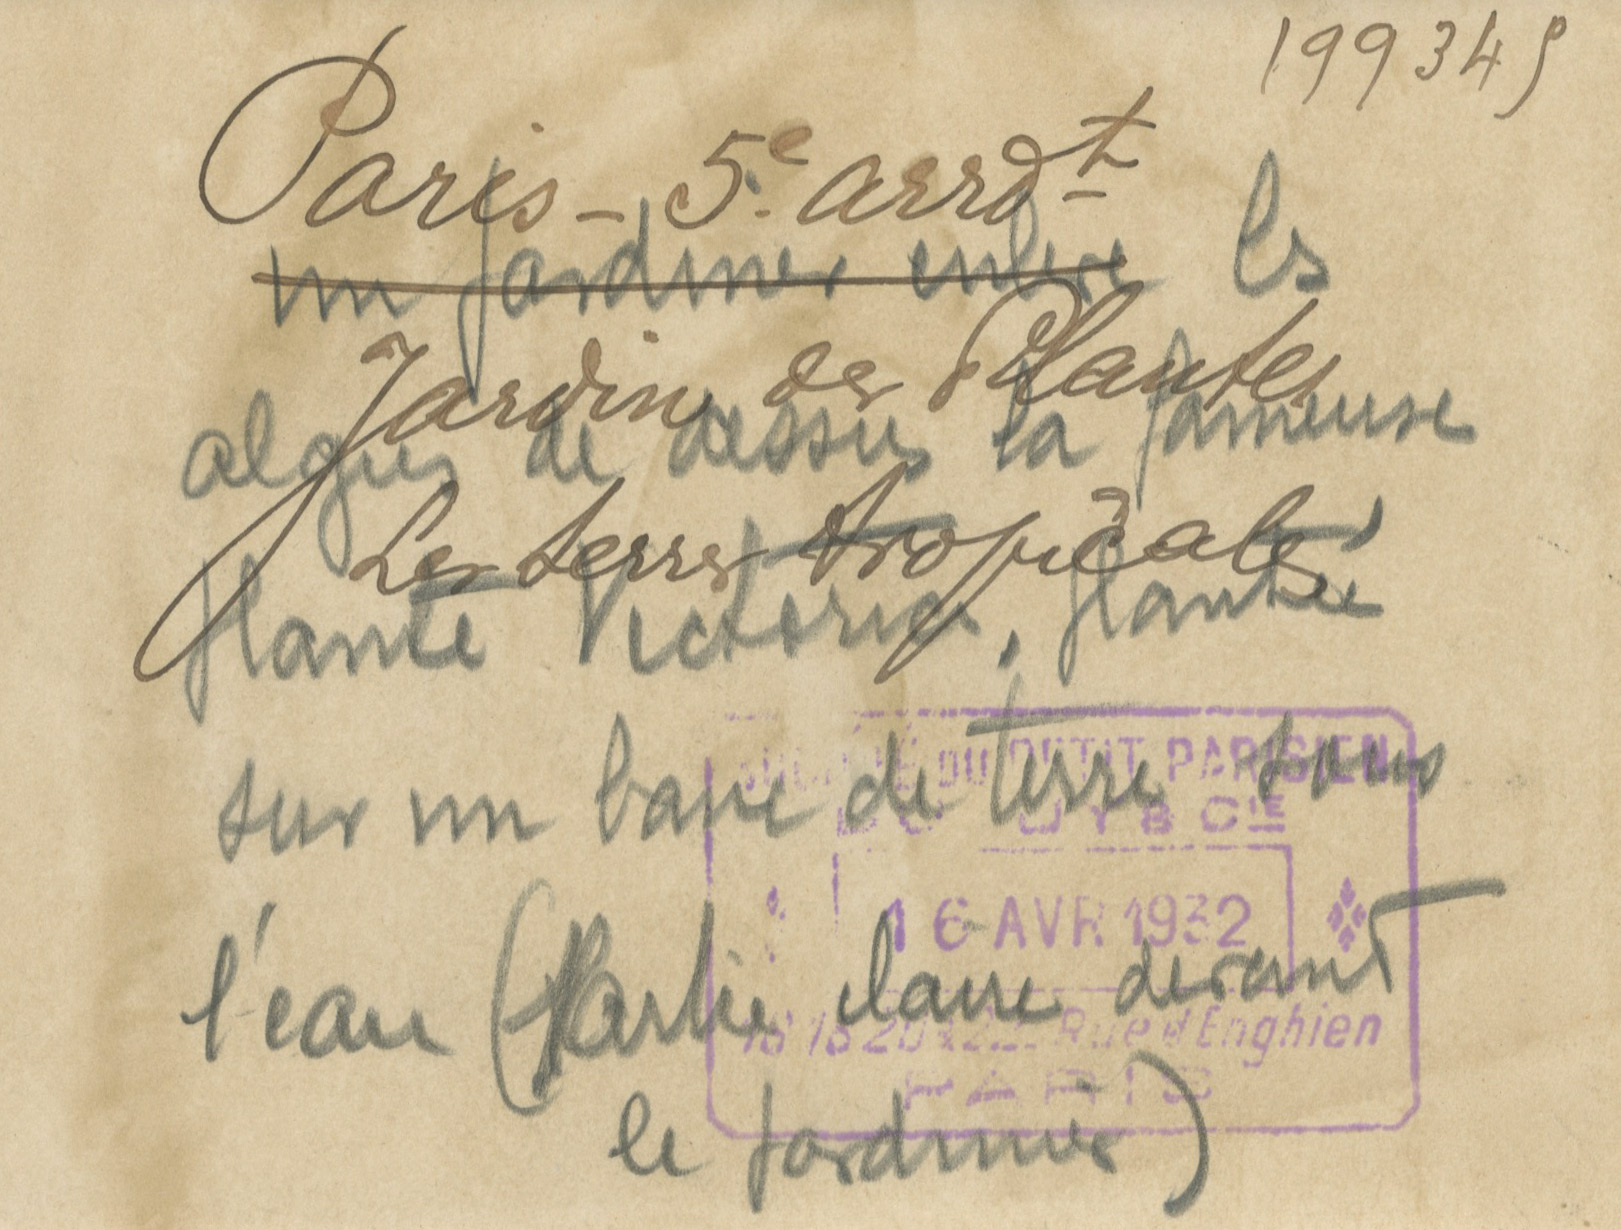 199349
Paris - 5e. arrdt
un jardinier enlève les
Jardin des Plantes
algues de dessus la fameuse
Les serres tropicales
plante Victoria, plantée
sur un banc de terre sous
l'eau (Partie claire devant
le jardinier)
DU PETIT PARISIEN
Cie
16 AVR 1932
Rue d'Enghien
PARIS